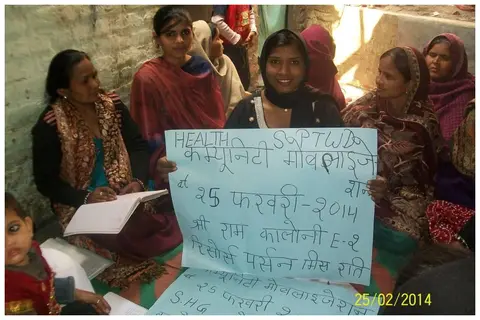 HEALTH SPTWD
कम्युनिटी मोबलाइजे
शन
at 25 फरवरी-2014
श्री राम कालोनी E-2
रिसोर्स पर्सन मिस राति
कम्युनिटी मोबलाइजेशन
25 फरवरी
SHG
25/02/2014